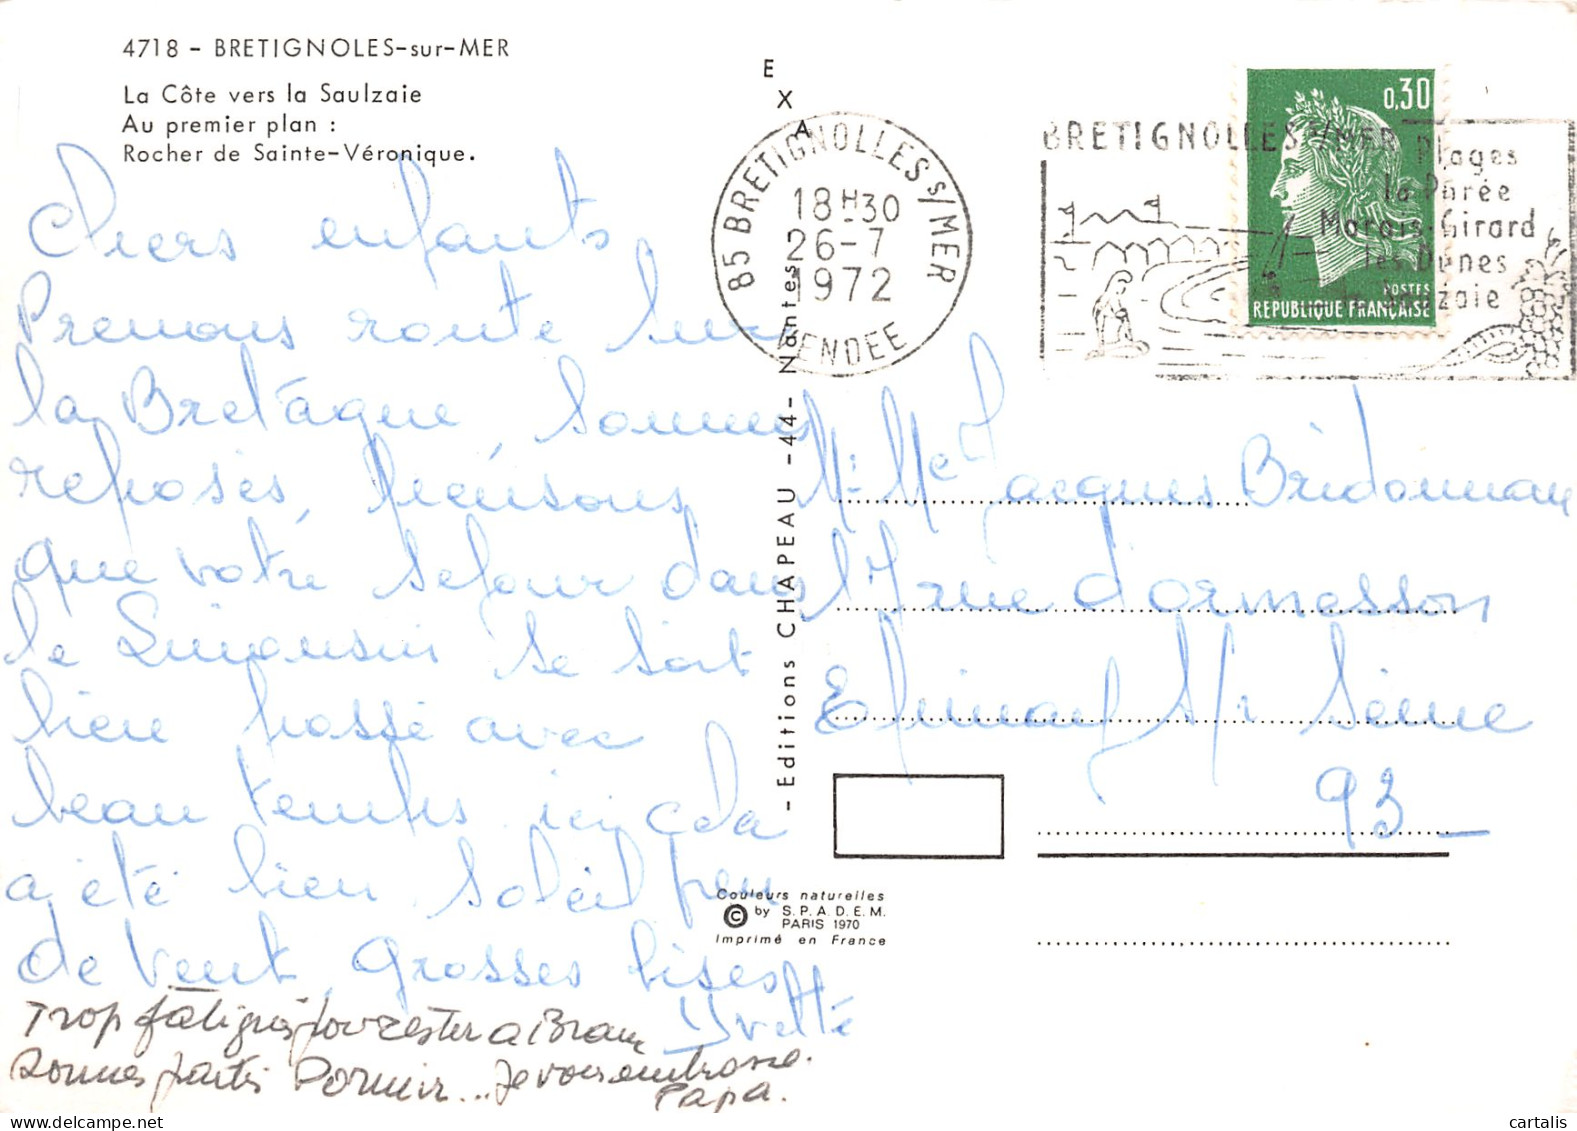 4718 - BRETIGNOLES-sur-MER
La Côte vers la Saulzaie
Au premier plan :
Rocher de Sainte-Véronique.
Chers enfants,
Prenons route sur
la Bretagne, sommes
reposés, pensons
que votre séjour dans
le Limousin se soit
bien passé avec
beau temps, ici cela
a été bien soleil peu
de vent, grosses bises
Yvette
Trop fatigués pour rester a
Sommes partis Dormir... Je vous embrasse.
Papa.
EXA
-Editions CHAPEAU -44- Nantes
Couleurs naturelles
© by S.P.A.D.E.M.
PARIS 1970
Imprimé en France
85 BRETIGNOLLES S/MER
18H30
26-7
1972
VENDEE
BRETIGNOLLES S/MER
Plages
la Parée
Marais-Girard
les Dunes
la Sauzaie
0,30
POSTES
REPUBLIQUE FRANÇAISE
Mr Me Jacques Bridonneau
17 rue d'ormesson
Epinay S/ Seine
93
cartalis